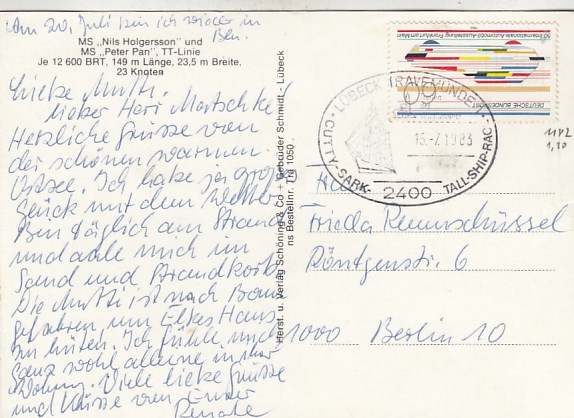 Am 20. Juli bin ich wieder in
Bln.
MS „Nils Holgersson" und
MS „Peter Pan", TT-Linie
Je 12 600 BRT, 149 m Länge, 23,5 m Breite,
23 Knoten
Liebe Mutti,
lieber Herr Matschke!
Herzliche Grüsse von
der schönen warmen
Ostsee. Ich habe ja große
Glück mit dem Wetter
Bin täglich am Strand
und aale mich im
Sand und Strandkorb
Die Mutti ist nach Bonn
gefahren, um Elkes Haus
zu hüten. Ich fühle mich
ganz wohl alleine in der
Wohnung. Viele liebe Grüsse
und Küsse von Eurer
Renate
Herst. u. Verlag Schöning & Co + Gebrüder Schmidt - Lübeck
50 Internationale Automobil-Ausstellung Frankfurt am Main
DEUTSCHE BUNDESPOST
LÜBECK TRAVEMÜNDE 1
CUTTY-SARK- TALL-SHIP-RAC
15.-7.1983
2400
1182
1,20
Frieda Rennschüssel
Röntgenstr. 6
1000 Berlin 10